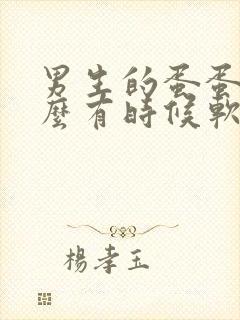 男生的蛋蛋
麼有時候軟
楊孝玉